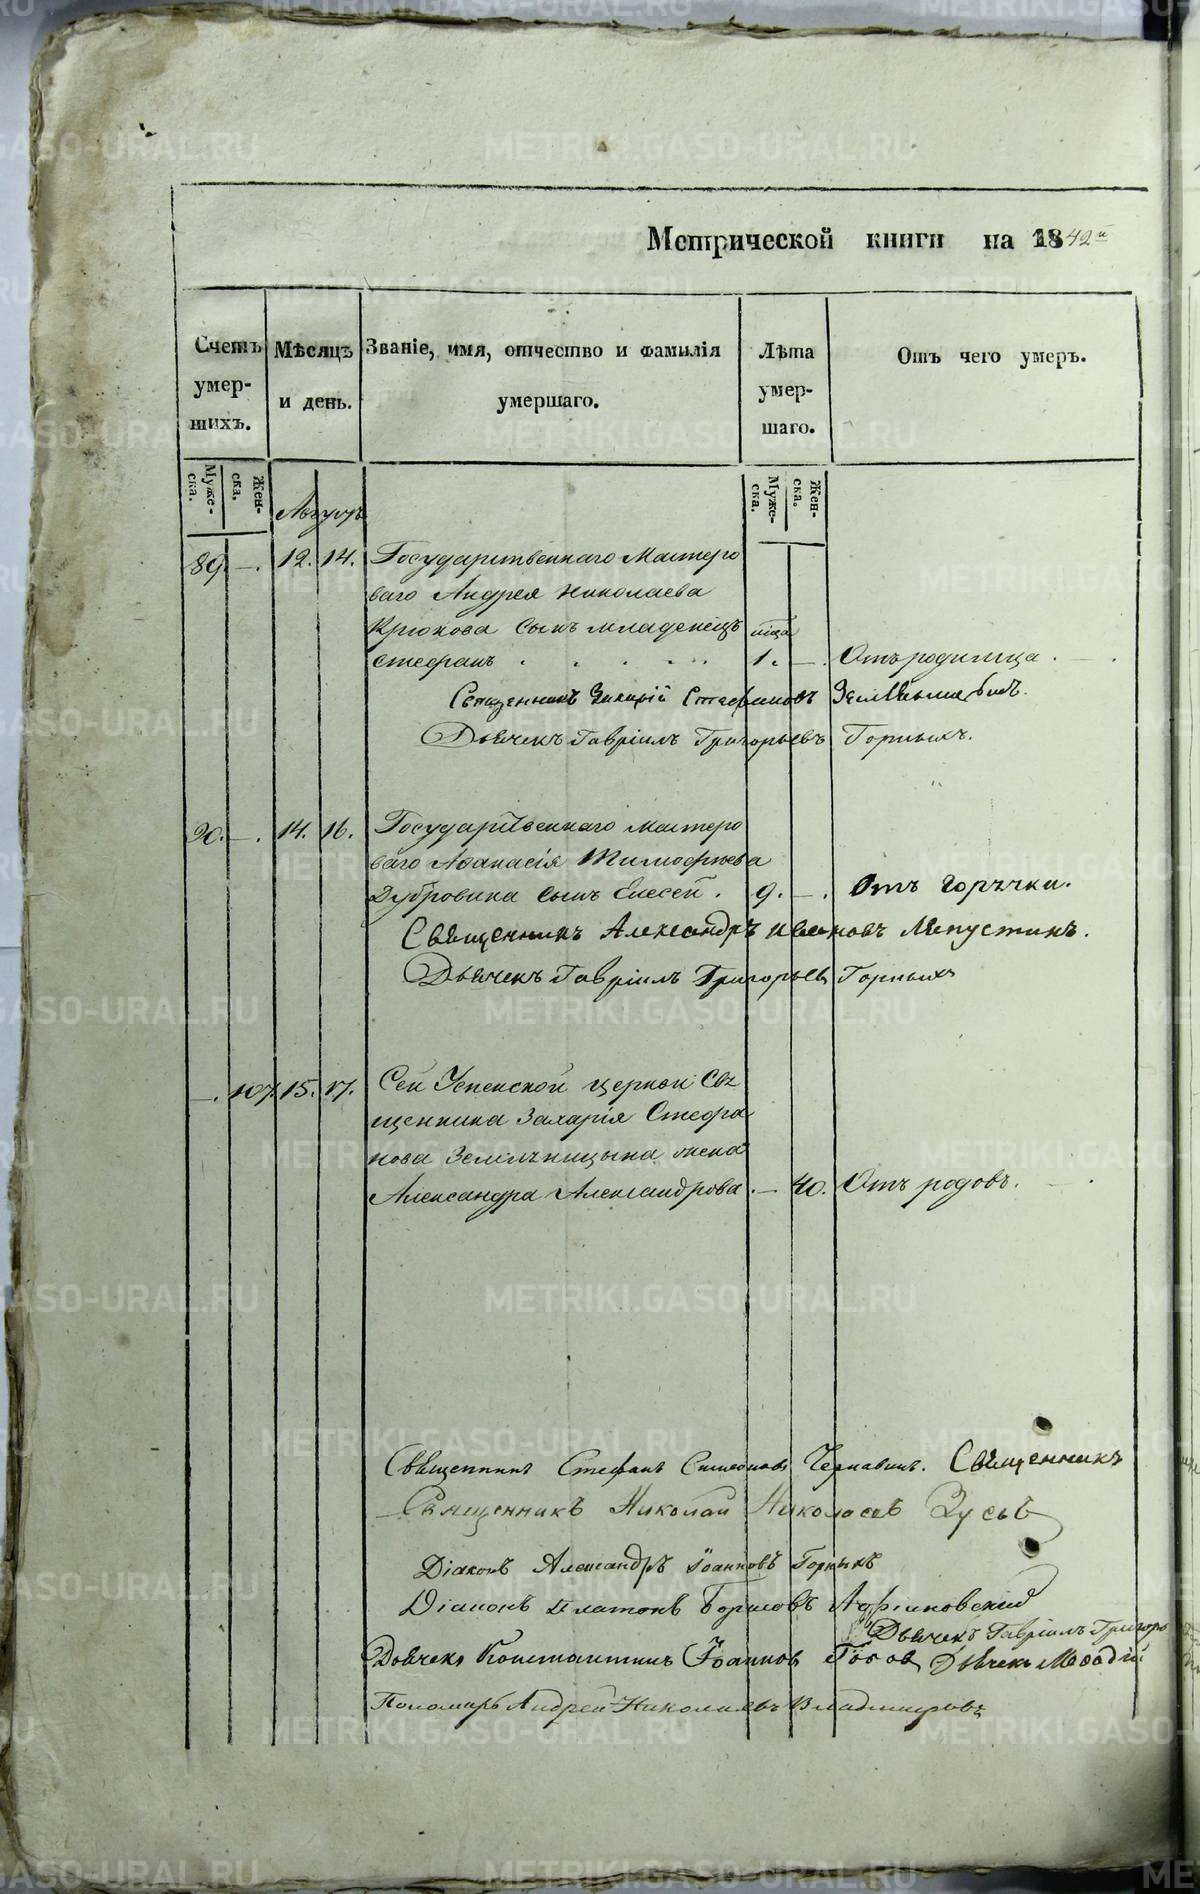 Метрической книги на 1842й
Счетъ умершихъ.
Мѣсяцъ и день.
Званіе, имя, отчество и фамилія умершаго.
Лѣта умершаго.
Отъ чего умеръ.
Мужеска.
Женска.
Мужеска.
Женска.
Августъ
89. —. 12. 14. Государственнаго Мастеро
ваго Андрея Николаева
Крюкова сынъ младенецъ
стефанъ 1. —. Отъ родимца.
Священникъ Захарій Стефановъ
Дьячекъ Гавріилъ Григорьевъ Горныхъ.
90. —. 14. 16. Государственнаго мастеро
ваго Аѳанасія Тимофѣева
Дубровина сынъ Елесей. 9. —. Отъ горячки.
Священникъ Александръ Ивановъ Ляпустинъ.
Дьячекъ Гавріилъ Григорьевъ Горныхъ
—. 107. 15. 17. Сей Успенской церкви Свя
щенника Захарія Стефа
нова Землѣницына жена
Александра Александрова. — 40. Отъ родовъ.
Священникъ Стефанъ Симеоновъ Чернавинъ. Священникъ
Священникъ Николай Николаевъ
Діаконъ Александръ Іоанновъ Горныхъ
Діаконъ Платонъ Борисовъ Адріановскій
Дьячекъ Гавріилъ Григоро
Дьячекъ Константинъ Іоанновъ Дьячекъ Меѳодій
Пономарь Андрей Николаевъ Владимировъ
METRIKI.GASO-URAL.RU